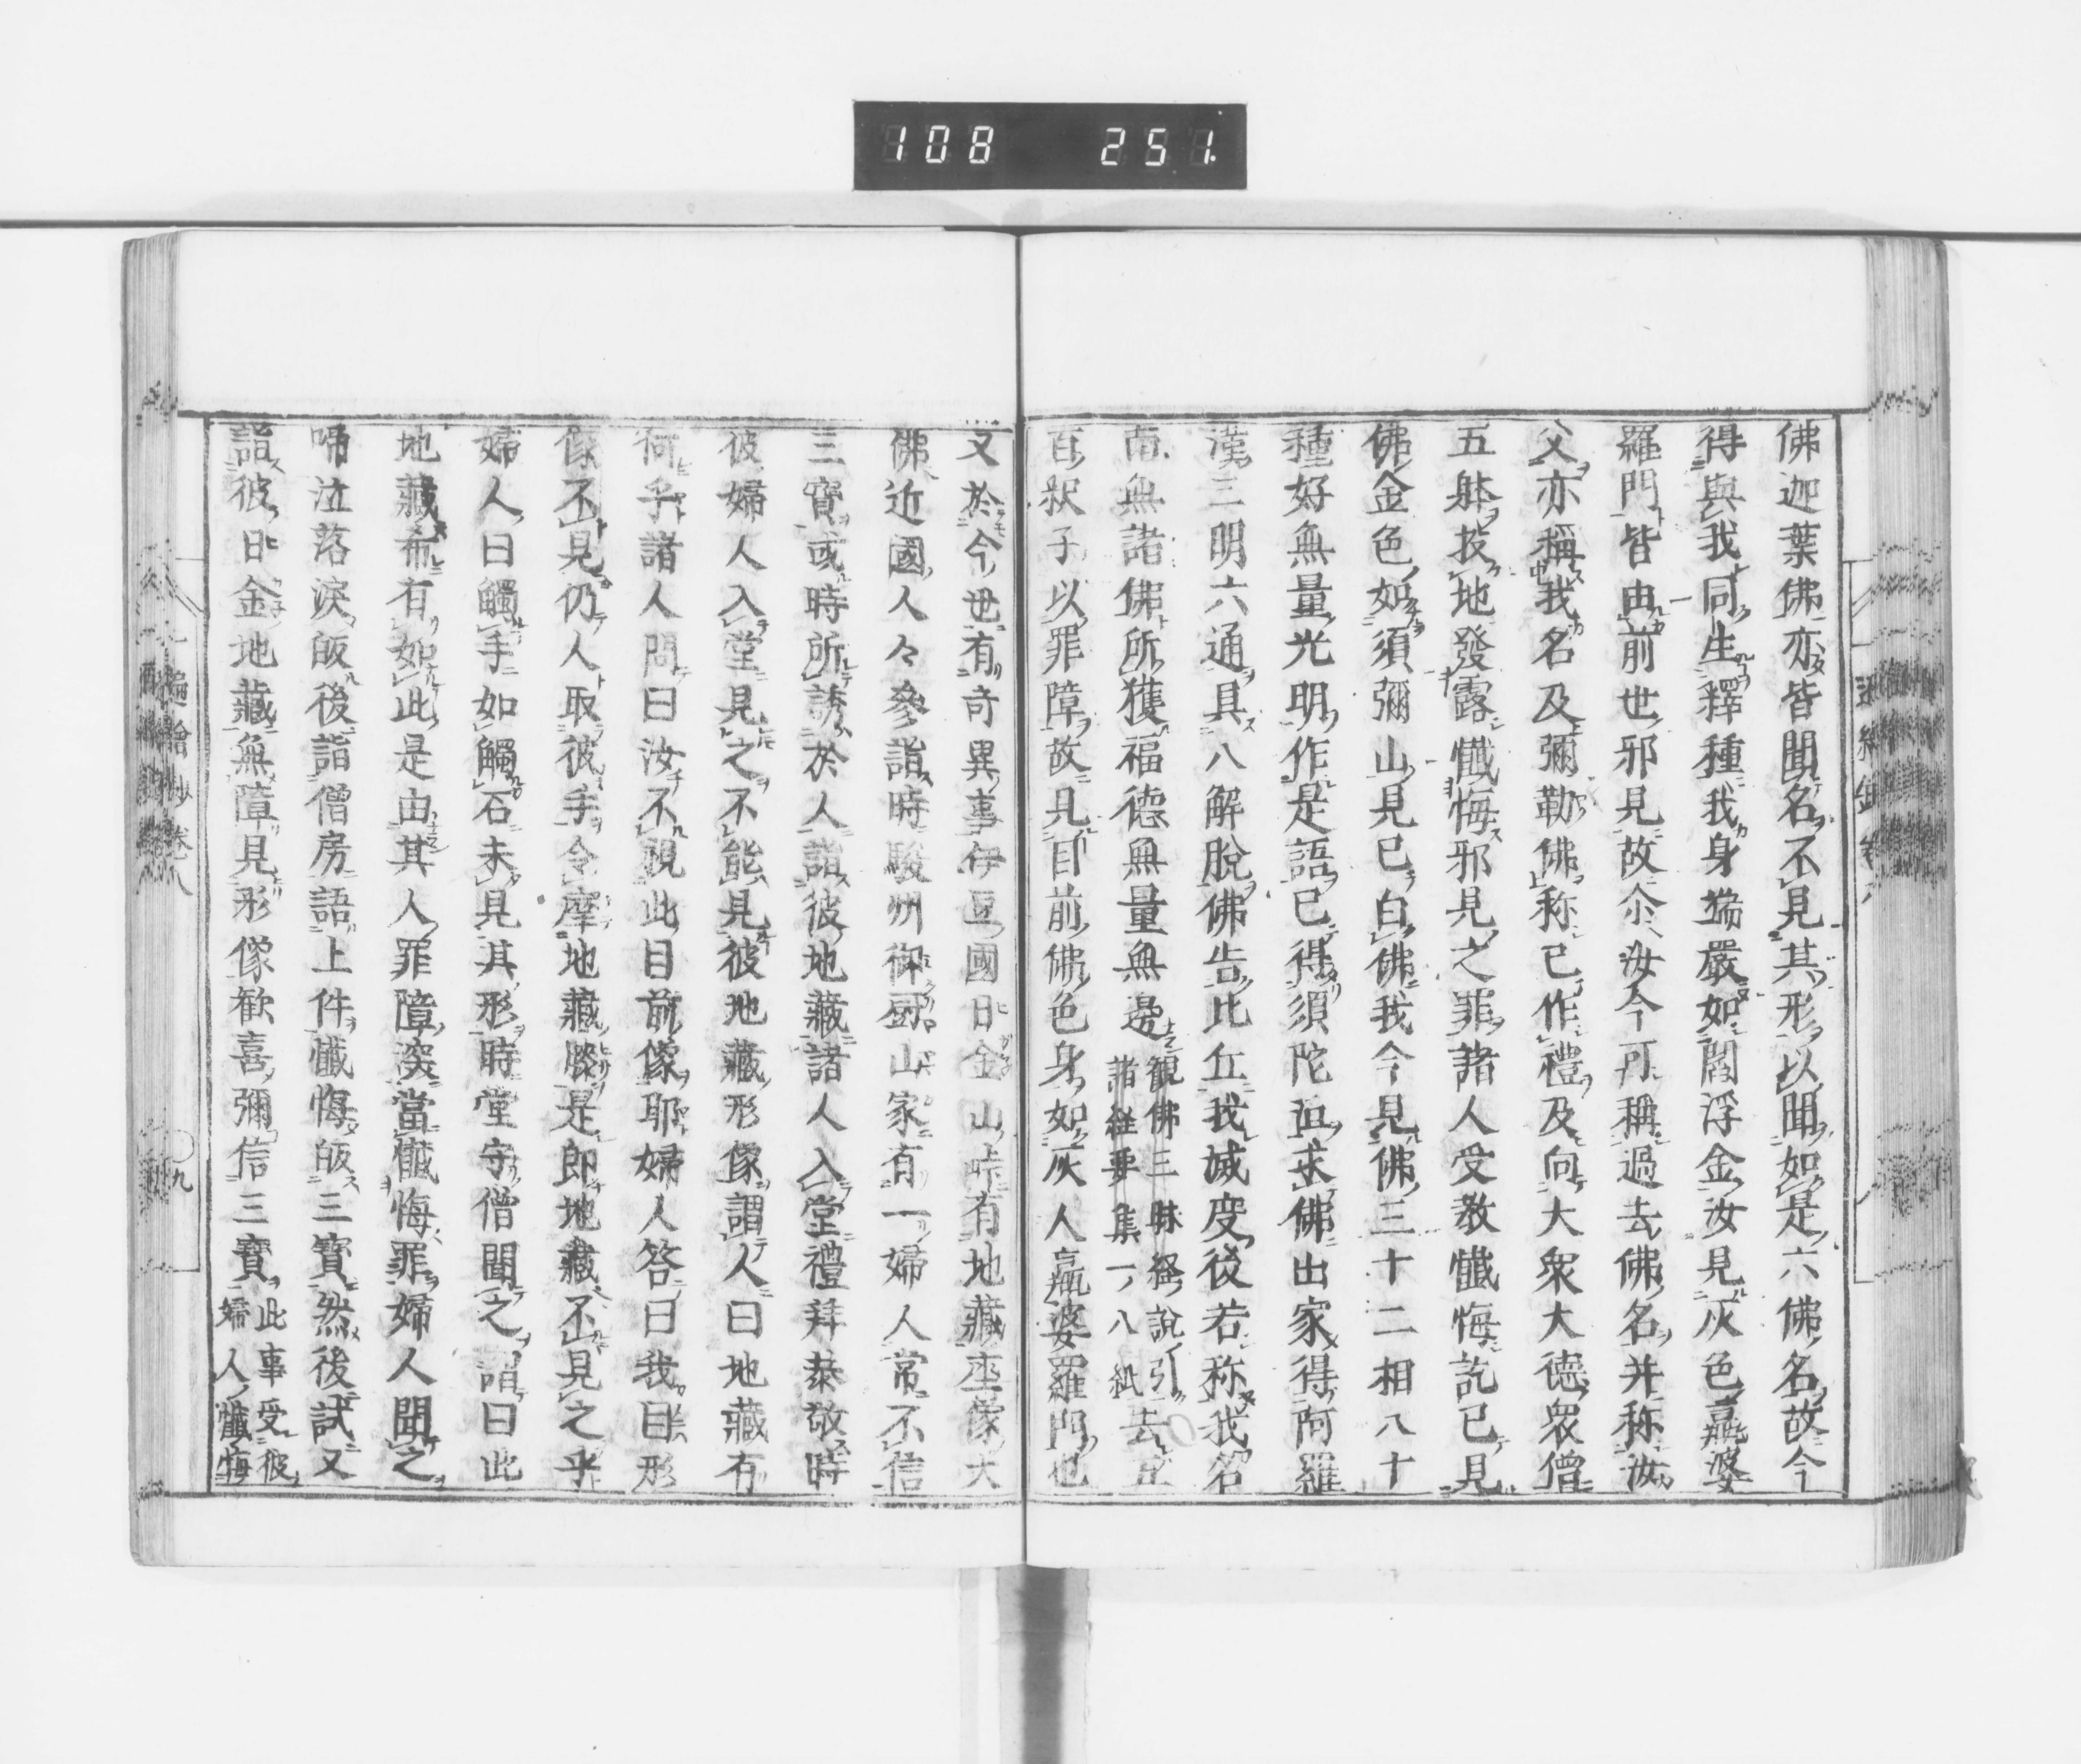 108 251.
佛迦葉佛亦皆聞名不見其形以聞如是六佛名故今
得與我同生釋種我身端嚴如閻浮金汝見灰色羸婆
羅門皆由前世邪見故尒汝今可稱過去佛名并称汝
父亦稱我名及彌勒佛称已作禮及向大衆大德衆僧
五躰投地發露懺悔邪見之罪諸人受教懺悔訖已見
佛金色如須彌山見已白佛我今見佛三十二相八十
種好無量光明作是語已得須陀洹求佛出家得阿羅
漢三明六通具八解脫佛告比丘我滅度後若称我名
南無諸佛所獲福德無量無邊觀佛三昧経說引諸経要集一八紙去五
百釈子以罪障故見目前佛色身如灰人羸婆羅門也
又於今世有奇異事伊豆國日金山峠有地藏座像大
佛近國人々參詣時駿州御厨山家有一婦人常不信
三寶或時所誘於人詣彼地藏諸人入堂禮拜恭敬時
彼婦人入堂見之不能見彼地藏形像謂人曰地藏有
何乎諸人問曰汝不視此目前像耶婦人答曰我目形
像不見仍人取彼手令摩地藏膝是即地藏不見之乎
婦人曰觸手如觸石未見其形時堂守僧聞之謂曰此
地藏希有如此是由其人罪障深當懺悔罪婦人聞之
啼泣落淚皈後詣僧房語上件懺悔皈三寶然後試又
詣彼日金地藏無障見形像歓喜彌信三寶此事受彼婦人懺悔
卷八
九